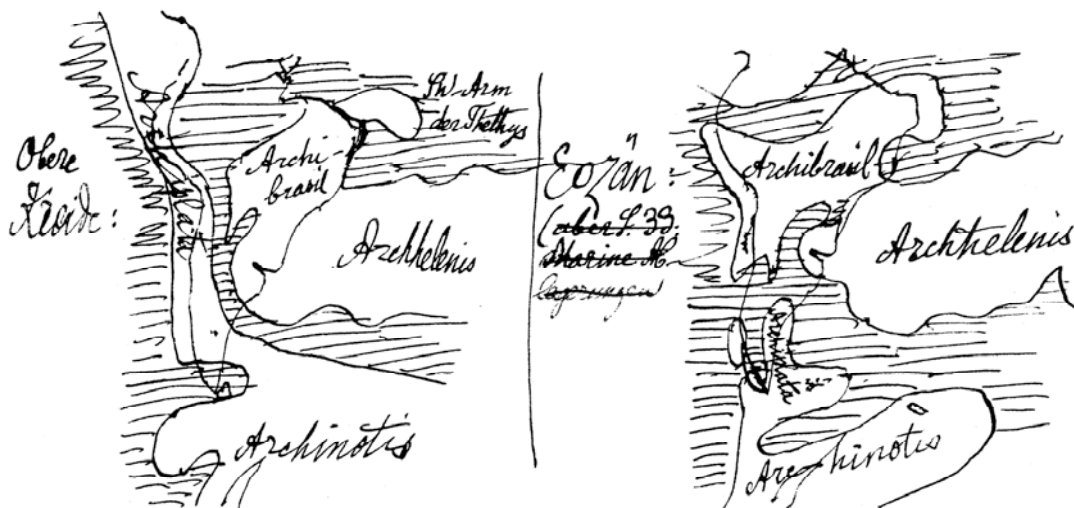 Obere
Kreide:
SW-Arm
der Thethys
Archi-
brasil
Archhelenis
Archinotis
Eozän:
(aber S. 39.
Marine Ab-
lagerungen
Archibrasil
Archhelenis
Archinotis